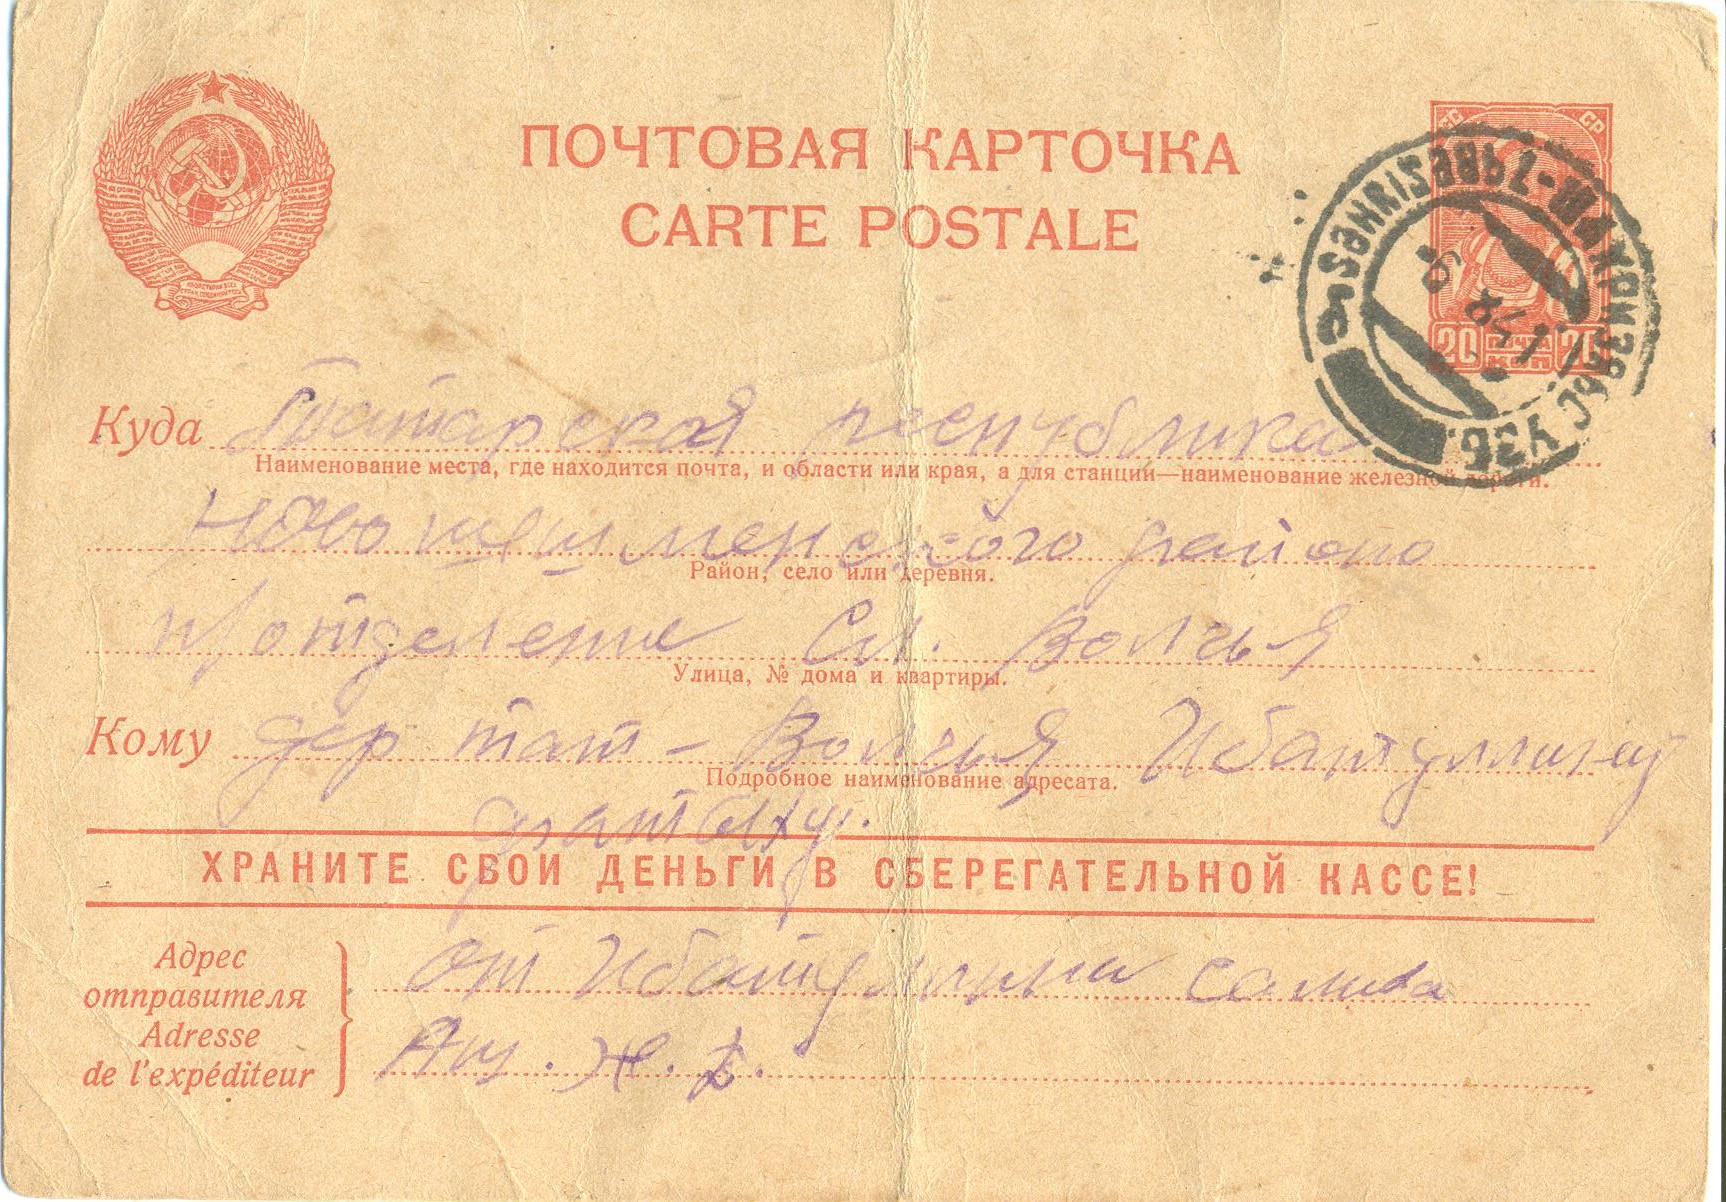 ПОЧТОВАЯ КАРТОЧКА
CARTE POSTALE
СС СР
20 ПОЧТА КОП 20
ŞƏHRISƏBZ ШАХРИЗЯБС УЗБ.
Куда Татарская республика
Наименование места, где находится почта, и области или края, а для станции—наименование железной дороги.
Ново шешменского району
Район, село или деревня.
п/отделение Сл. Волчья
Улица, № дома и квартиры.
Кому дер тат - Волчья Ибатуллину
Подробное наименование адресата.
ХРАНИТЕ СВОИ ДЕНЬГИ В СБЕРЕГАТЕЛЬНОЙ КАССЕ!
Адрес
отправителя
Adresse
de l'expéditeur
от Ибатуллина Салиха